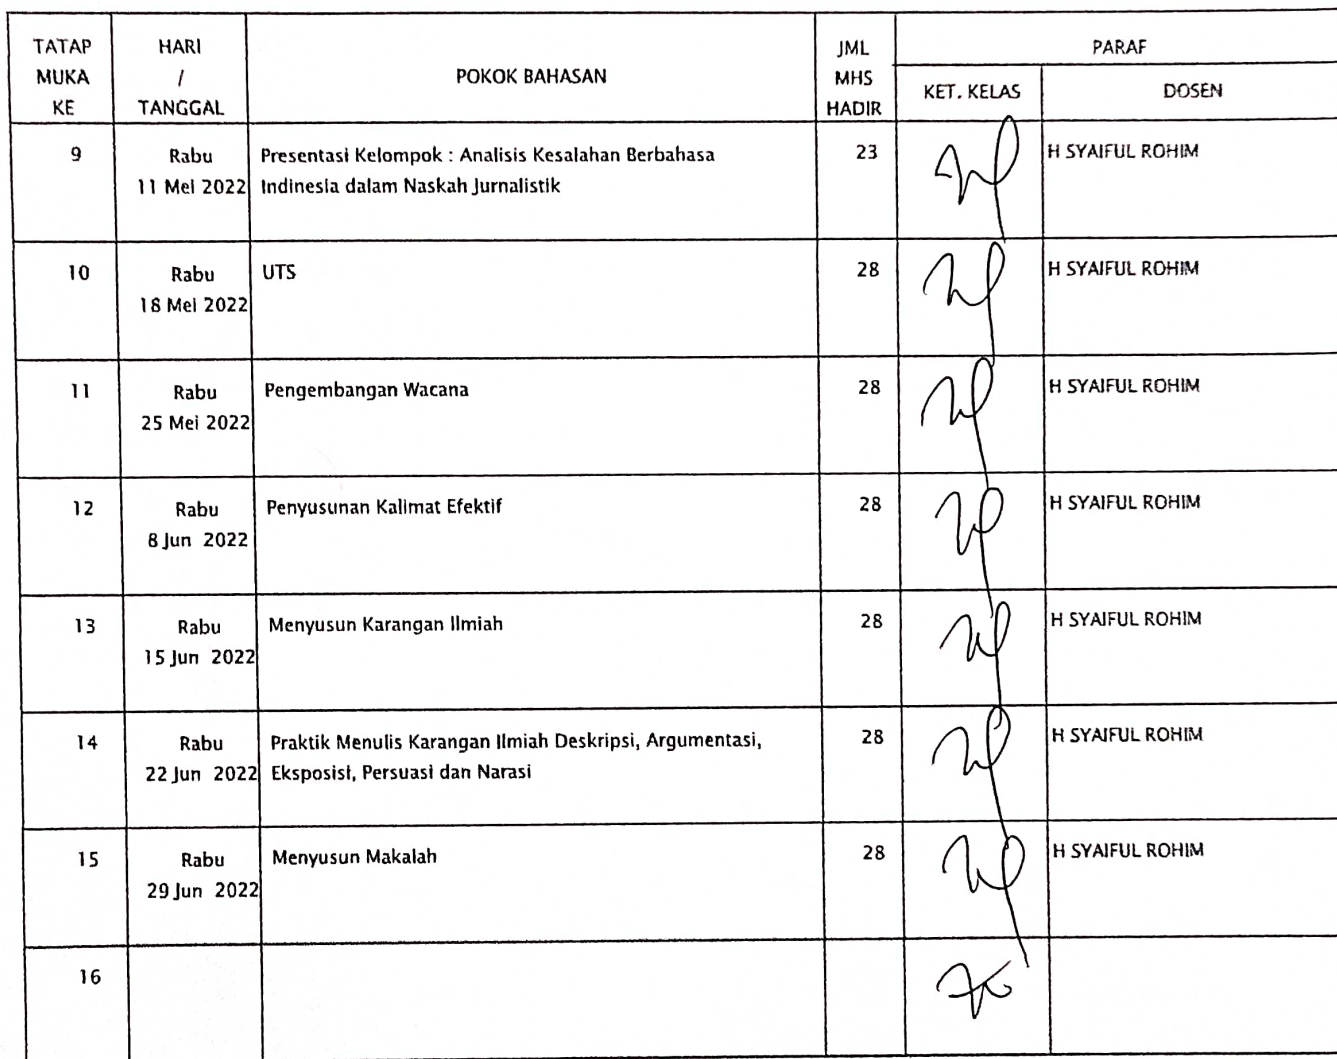 TATAP MUKA KE
HARI / TANGGAL
POKOK BAHASAN
JML MHS HADIR
PARAF
KET. KELAS
DOSEN
9
Rabu
11 Mei 2022
Presentasi Kelompok : Analisis Kesalahan Berbahasa
Indinesia dalam Naskah Jurnalistik
23
H SYAIFUL ROHIM
10
Rabu
18 Mei 2022
UTS
28
H SYAIFUL ROHIM
11
Rabu
25 Mei 2022
Pengembangan Wacana
28
H SYAIFUL ROHIM
12
Rabu
8 Jun 2022
Penyusunan Kalimat Efektif
28
H SYAIFUL ROHIM
13
Rabu
15 Jun 2022
Menyusun Karangan Ilmiah
28
H SYAIFUL ROHIM
14
Rabu
22 Jun 2022
Praktik Menulis Karangan Ilmiah Deskripsi, Argumentasi,
Eksposisi, Persuasi dan Narasi
28
H SYAIFUL ROHIM
15
Rabu
29 Jun 2022
Menyusun Makalah
28
H SYAIFUL ROHIM
16